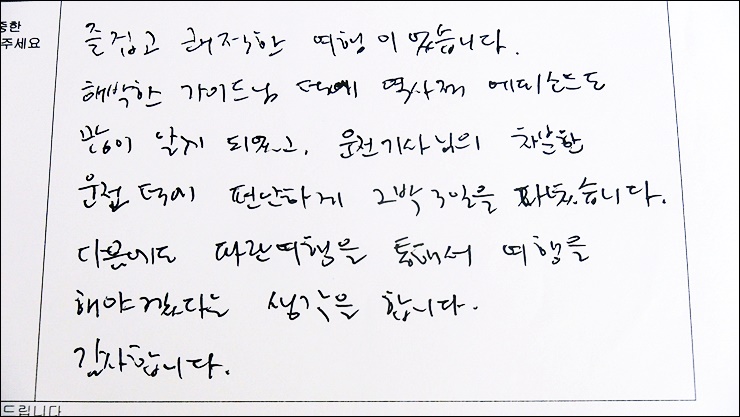 중한
주세요
즐겁고 쾌적한 여행이었습니다.
해박한 가이드님 덕에 역사적 에피소드도
많이 알게 되었고, 운전기사님의 차분한
운전 덕에 편안하게 2박 3일을 다녔습니다.
다음에도 파란여행을 통해서 여행을
해야겠다는 생각을 합니다.
감사합니다.
드립니다